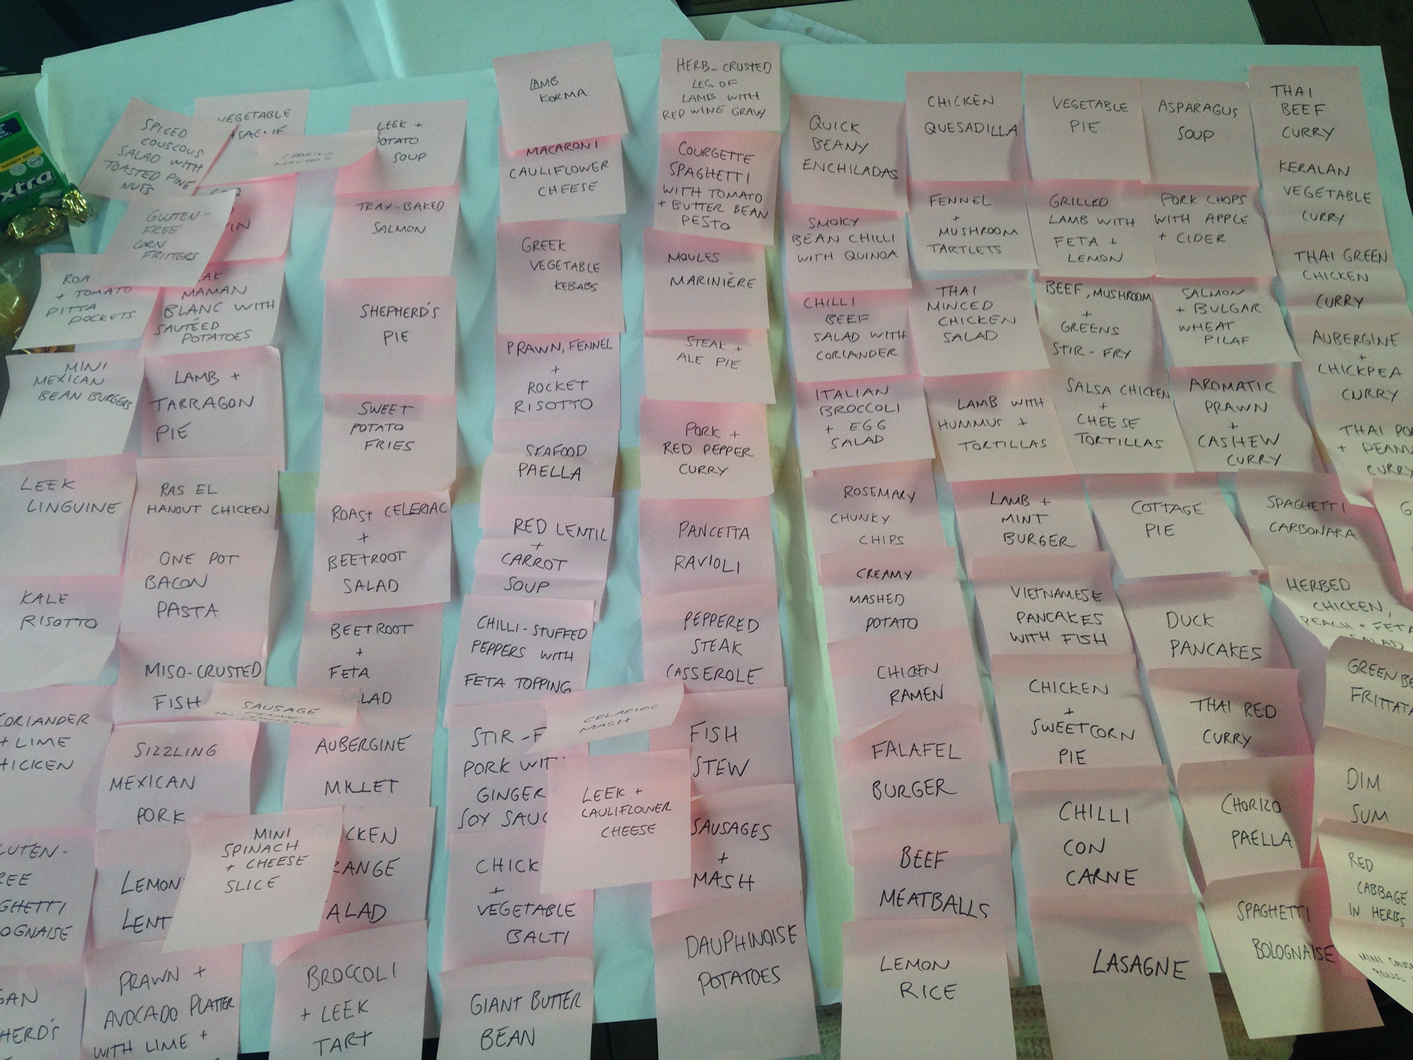 SPICED
COUSCOUS
SALAD WITH
TOASTED PINE
NUTS
VEGETABLE
GLUTEN-
FREE
CORN
FRITTERS
+ TOMATO
PITTA
POCKETS
MAMAN
BLANC WITH
SAUTÉED
POTATOES
MINI
MEXICAN
BEAN BURGERS
LAMB +
TARRAGON
PIE
LEEK
LINGUINE
RAS EL
HANOUT CHICKEN
KALE
RISOTTO
ONE POT
BACON
PASTA
MISO-CRUSTED
FISH
SAUSAGE
CORIANDER
+ LIME
CHICKEN
SIZZLING
MEXICAN
PORK
MINI
SPINACH
+ CHEESE
SLICE
LEMON
LENT
PRAWN +
AVOCADO PLATTER
WITH LIME +
xtra
LEEK +
POTATO
SOUP
TRAY-BAKED
SALMON
SHEPHERD'S
PIE
SWEET
POTATO
FRIES
ROAST CELERIAC
+
BEETROOT
SALAD
BEETROOT
+
FETA
LAD
AUBERGINE
MILLET
CKEN
ANGE
ALAD
BROCCOLI
+ LEEK
TART
LAMB
KORMA
MACARONI
CAULIFLOWER
CHEESE
GREEK
VEGETABLE
KEBABS
PRAWN, FENNEL
+
ROCKET
RISOTTO
SEAFOOD
PAELLA
RED LENTIL
+
CARROT
SOUP
CHILLI-STUFFED
PEPPERS WITH
FETA TOPPING
STIR-F
PORK WIT
GINGER
SOY SAUC
CHICK
+
VEGETABLE
BALTI
GIANT BUTTER
BEAN
CELARIAC
MASH
LEEK +
CAULIFLOWER
CHEESE
HERB-CRUSTED
LEG OF
LAMB WITH
RED WINE GRAVY
COURGETTE
SPAGHETTI
WITH TOMATO
+ BUTTER BEAN
PESTO
MOULES
MARINIÈRE
STEAK +
ALE PIE
PORK +
RED PEPPER
CURRY
PANCETTA
RAVIOLI
PEPPERED
STEAK
CASSEROLE
FISH
STEW
SAUSAGES
+
MASH
DAUPHINOISE
POTATOES
QUICK
BEANY
ENCHILADAS
SMOKY
BEAN CHILLI
WITH QUINOA
CHILLI
BEEF
SALAD WITH
CORIANDER
ITALIAN
BROCCOLI
+ EGG
SALAD
ROSEMARY
CHUNKY
CHIPS
CREAMY
MASHED
POTATO
CHICKEN
RAMEN
FALAFEL
BURGER
BEEF
MEATBALLS
LEMON
RICE
CHICKEN
QUESADILLA
FENNEL
+
MUSHROOM
TARTLETS
THAI
MINCED
CHICKEN
SALAD
LAMB WITH
HUMMUS +
TORTILLAS
LAMB +
MINT
BURGER
VIETNAMESE
PANCAKES
WITH FISH
CHICKEN
+
SWEETCORN
PIE
CHILLI
CON
CARNE
LASAGNE
VEGETABLE
PIE
GRILLED
LAMB WITH
FETA +
LEMON
BEEF, MUSHROOM
+
GREENS
STIR-FRY
SALSA CHICKEN
+
CHEESE
TORTILLAS
COTTAGE
PIE
DUCK
PANCAKES
THAI RED
CURRY
CHORIZO
PAELLA
SPAGHETTI
BOLOGNAISE
ASPARAGUS
SOUP
PORK CHOPS
WITH APPLE
+ CIDER
SALMON
+ BULGAR
WHEAT
PILAF
AROMATIC
PRAWN
+
CASHEW
CURRY
SPAGHETTI
CARBONARA
HERBED
CHICKEN,
PEACH + FETA
SALAD
GREEN BE
FRITTATA
DIM
SUM
RED
CABBAGE
IN HERBS
THAI
BEEF
CURRY
KERALAN
VEGETABLE
CURRY
THAI GREEN
CHICKEN
CURRY
AUBERGINE
+
CHICKPEA
CURRY
THAI PO
+ PEANU
CURRY